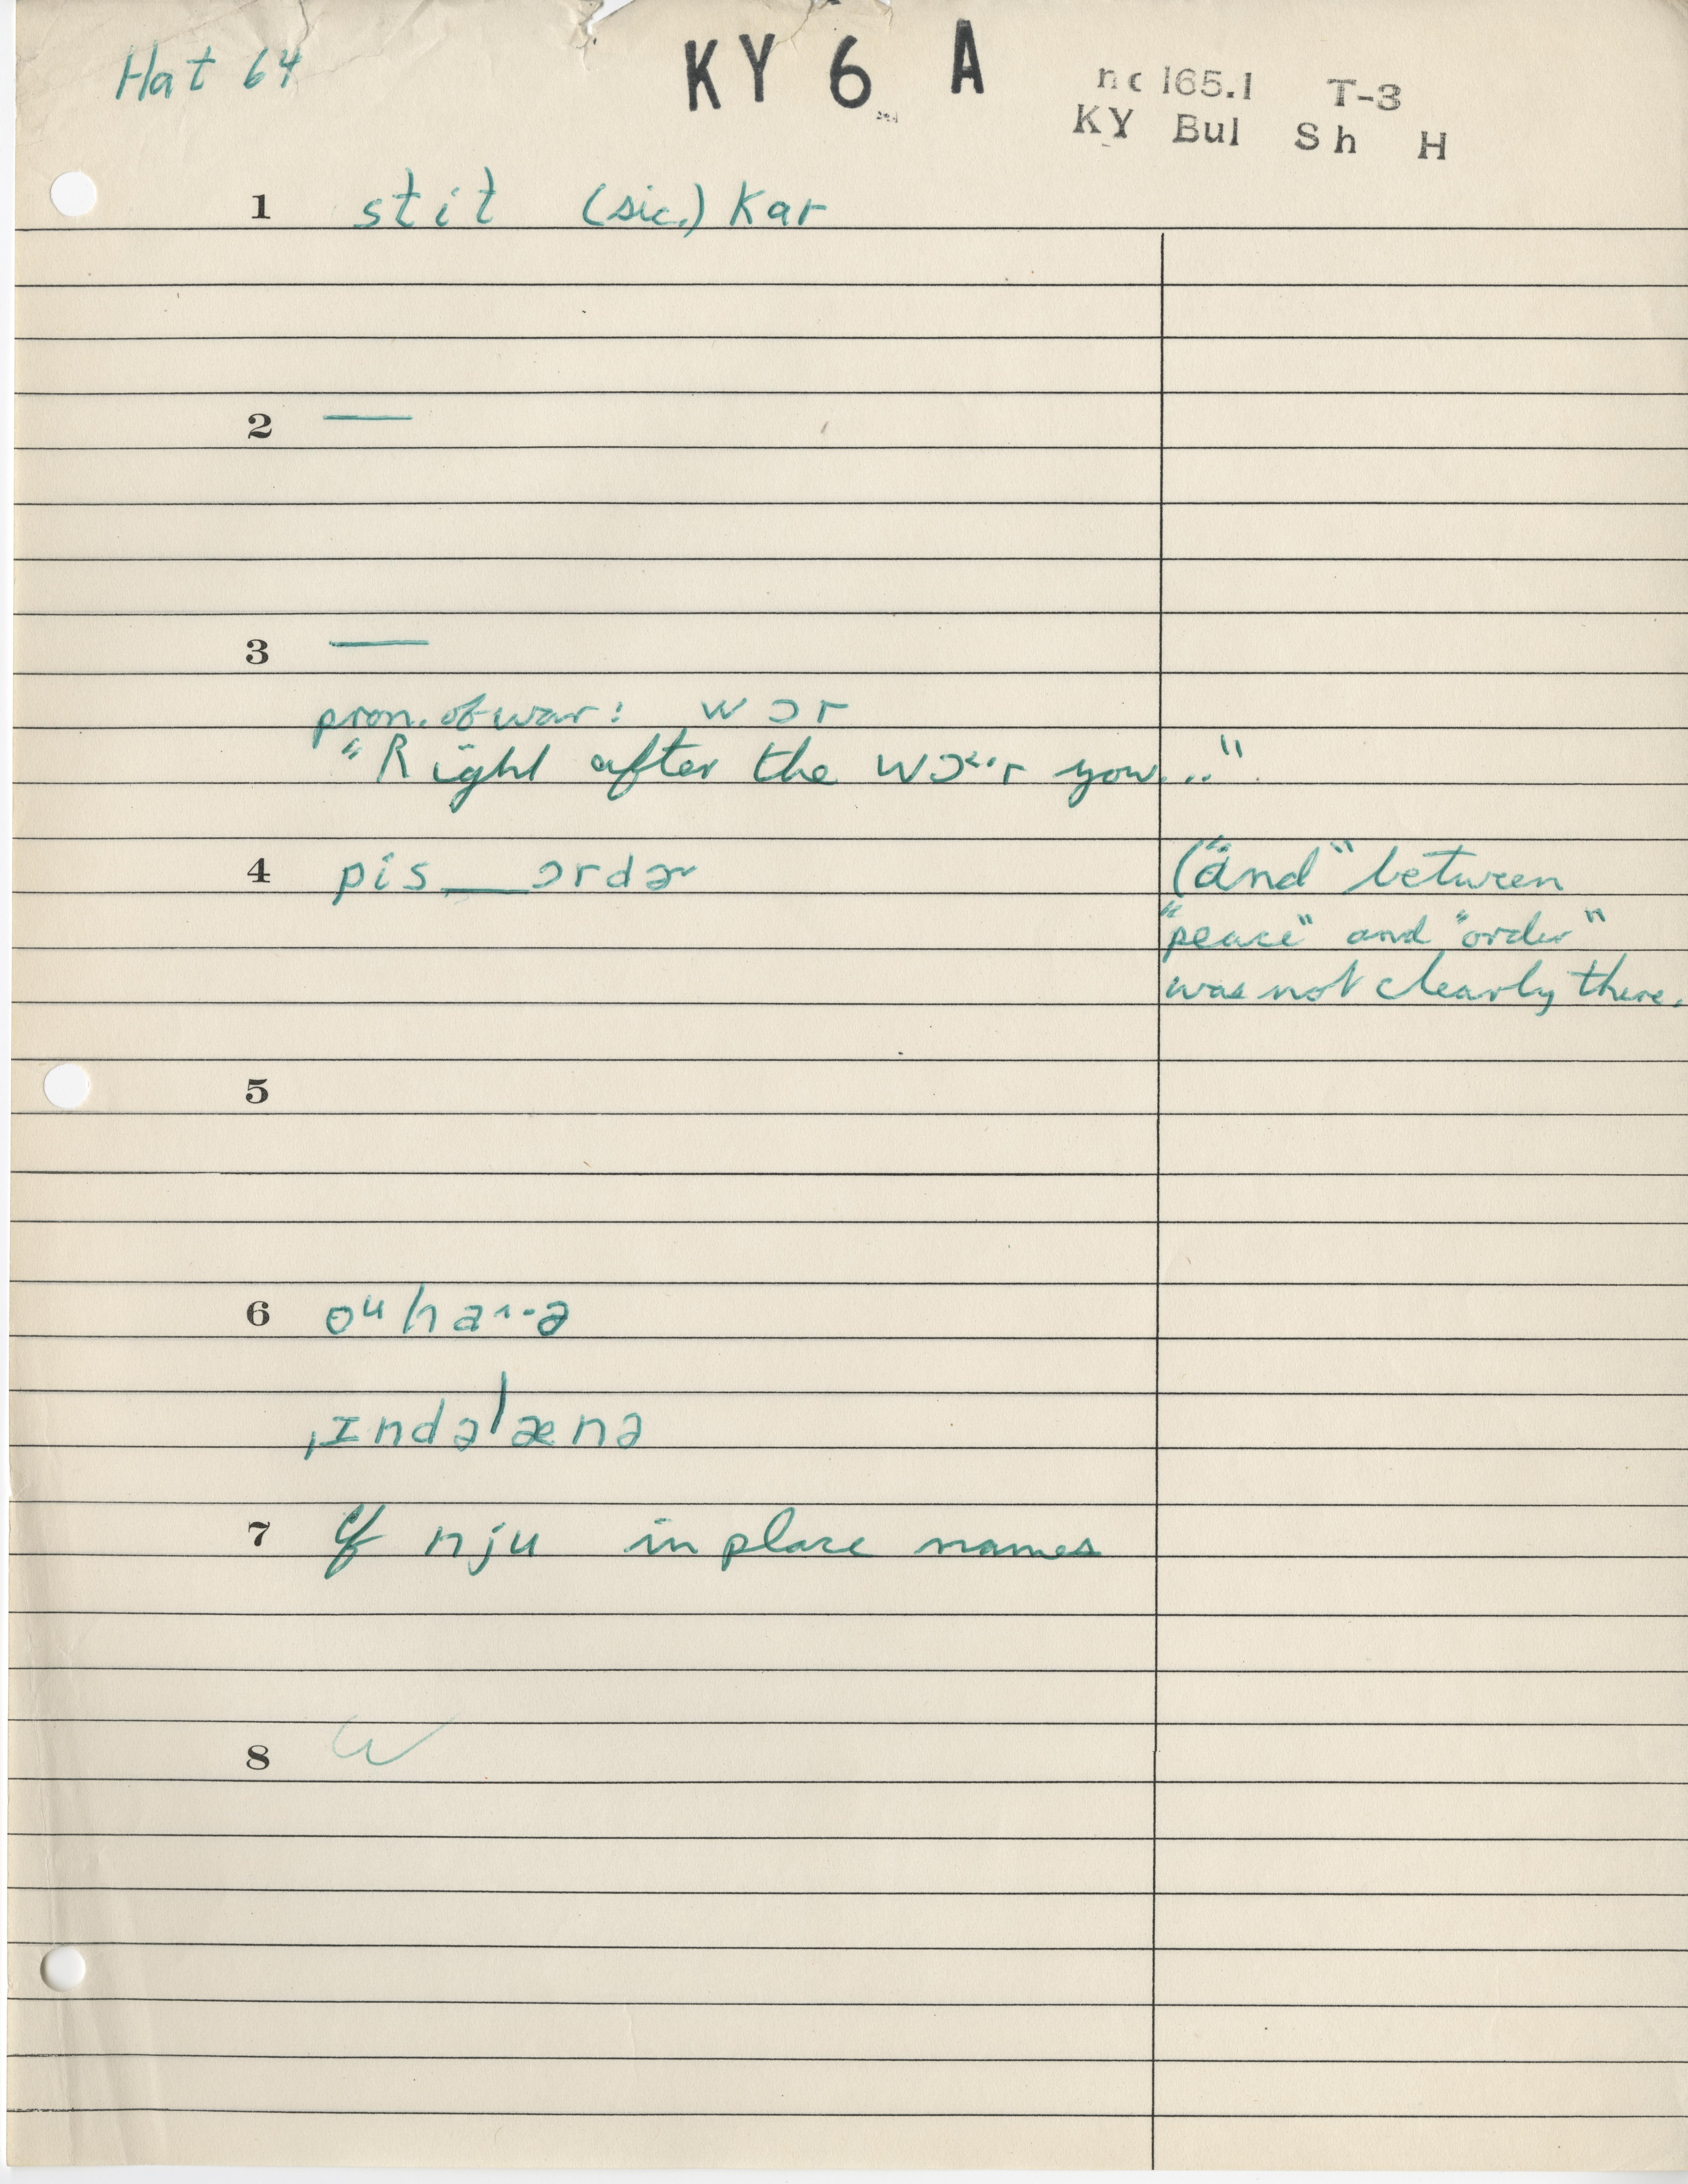 Hat 64
KY 6 A
nc 165.1 T-3
KY Bul Sh H
1 stit (sic.) Kar
2 —
3 —
pron. of war: wɔr
"Right after the wɔˑˑr you..."
4 pis___ɔrdɚ ("and" between
"peace" and "order"
was not clearly there.
5
6 oᵘhaˑˑə
ˌɪndəˈænə
7 If nju in place names
8 W